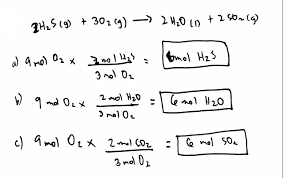 2H₂S (g) + 3O₂ (g) → 2 H₂O (l) + 2 SO₂ (g)
a) 9 mol O₂ x 2 mol H₂S / 3 mol O₂ = 6 mol H₂S
b) 9 mol O₂ x 2 mol H₂O / 3 mol O₂ = 6 mol H₂O
c) 9 mol O₂ x 2 mol CO₂ / 3 mol O₂ = 6 mol SO₂